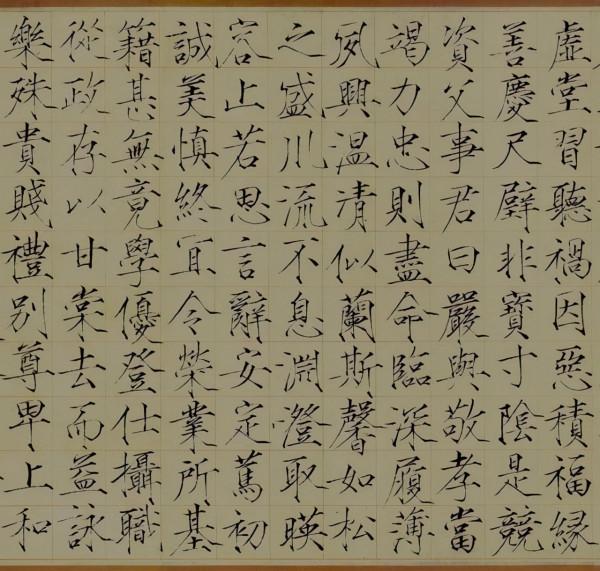 虛堂習聽禍因惡積福緣
善慶尺璧非寶寸陰是競
資父事君曰嚴與敬孝當
竭力忠則盡命臨深履薄
夙興温清似蘭斯馨如松
之盛川流不息淵澄取暎
容止若思言辭安定篤初
誠美慎終宜令榮業所基
籍甚無竟學優登仕攝職
從政存以甘棠去而益詠
樂殊貴賤禮別尊卑上和